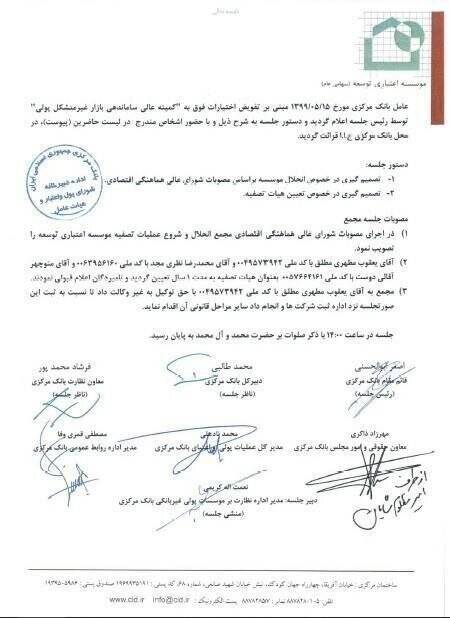 باسمه تعالی
موسسه اعتباری توسعه (سهامی عام)
عامل بانک مرکزی مورخ ۱۳۹۹/۰۵/۱۵ مبنی بر تفویض اختیارات فوق به "کمیته عالی ساماندهی بازار غیرمتشکل پولی"
توسط رئیس جلسه اعلام گردید و دستور جلسه به شرح ذیل و با حضور اشخاص مندرج در لیست حاضرین (پیوست)، در
محل بانک مرکزی ج.ا.ا قرائت گردید.
دستور جلسه:
۱- تصمیم گیری در خصوص انحلال موسسه براساس مصوبات شورای عالی هماهنگی اقتصادی.
۲- تصمیم گیری در خصوص تعیین هیات تصفیه.
بانک مرکزی جمهوری اسلامی ایران
اداره دبیرخانه
شورای پول و اعتبار و
هیات عامل
مصوبات جلسه مجمع
۱) در اجرای مصوبات شورای عالی هماهنگی اقتصادی مجمع انحلال و شروع عملیات تصفیه موسسه اعتباری توسعه را
تصویب نمود.
۲) آقای یعقوب مطهری مطلق با کد ملی ۰۰۴۹۵۷۳۹۴۲ و آقای محمدرضا نظری مجد با کد ملی ۰۰۶۳۹۵۶۱۶۰ و آقای منوچهر
آقائی دوست با کد ملی ۰۰۵۷۶۶۴۱۶۱ بعنوان هیات تصفیه به مدت ۱ سال تعیین گردید و نامبردگان اعلام قبولی نمودند.
۳) مجمع به آقای یعقوب مطهری مطلق با کد ملی ۰۰۴۹۵۷۳۹۴۲ با حق توکیل به غیر وکالت داد تا نسبت به ثبت این
صورتجلسه نزد اداره ثبت شرکت ها و انجام داد سایر مراحل قانونی آن اقدام نماید.
جلسه در ساعت ۱۴:۰۰ با ذکر صلوات بر حضرت محمد و آل محمد به پایان رسید.
اصغر ابوالحسنی محمد طالبی فرشاد محمد پور
قائم مقام بانک مرکزی دبیرکل بانک مرکزی معاون نظارت بانک مرکزی
(رئیس جلسه) (ناظر جلسه) (ناظر جلسه)
مهرزاد ذاکری محمد نادعلی مصطفی قمری وفا
معاون حقوقی و امور مجلس بانک مرکزی مدیر کل عملیات پولی و اعتباری بانک مرکزی مدیر اداره روابط عمومی بانک مرکزی
نعمت اله کریمی
دبیر جلسه: مدیر اداره نظارت بر موسسات پولی غیربانکی بانک مرکزی
(منشی جلسه)
از طرف
ساختمان مرکزی : خیابان آفریقا، چهارراه جهان کودک، نبش خیابان شهید صانعی، شماره ۶۸، کد پستی : ۱۹۶۹۹۳۵۱۹۱ صندوق پستی : ۱۹۳۹۵-۵۹۸۴
تلفن : ۵-۸۸۷۸۲۸۰۱ نمابر : ۸۸۷۸۲۸۵۷ پست الکترونیک : info@cid.ir www.cid.ir